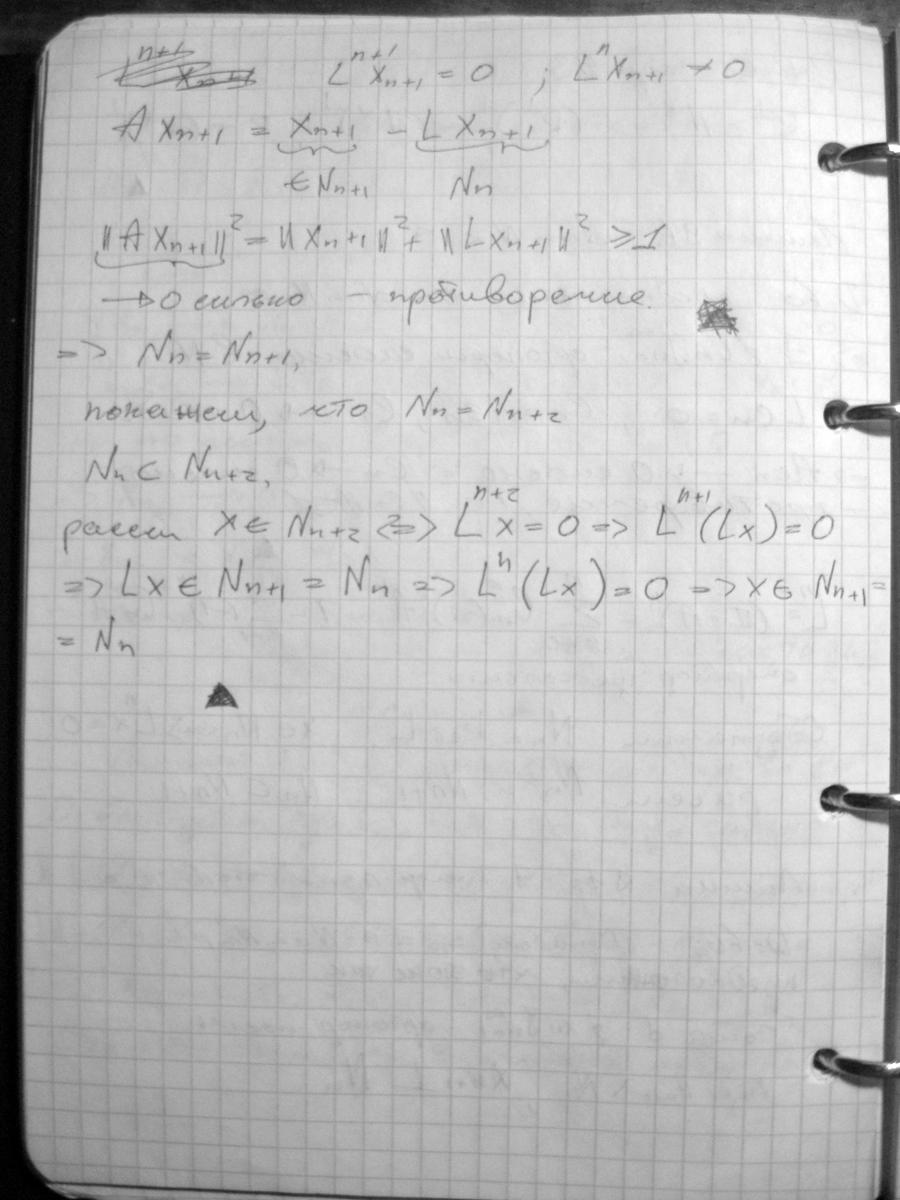 L^{n+1} x_{n+1} = 0 ; L^n x_{n+1} ≠ 0
A x_{n+1} = x_{n+1} - L x_{n+1}
∈ N_{n+1} N_n
||A x_{n+1}||² = ||x_{n+1}||² + ||L x_{n+1}||² ≥ 1
→ 0 сильно — противоречие.
=> N_n = N_{n+1},
покажем, что N_n = N_{n+2}
N_n ⊂ N_{n+2},
рассм x ∈ N_{n+2} => L^{n+2} x = 0 => L^{n+1} (Lx) = 0
=> Lx ∈ N_{n+1} = N_n => L^n (Lx) = 0 => x ∈ N_{n+1} =
= N_n